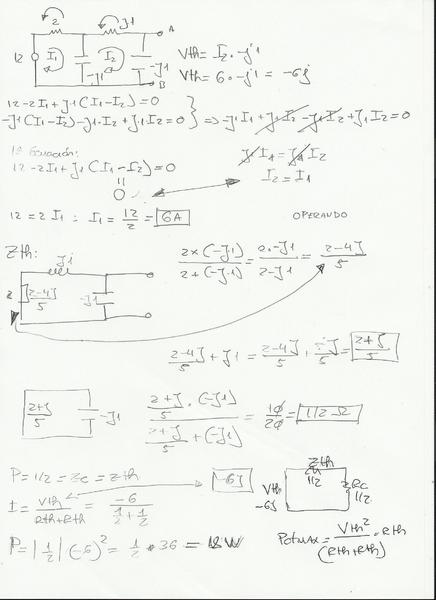 2 J1 A
12 I1 -J1 I2 -J1 B
Vth = I2 · -j1
Vth = 6 · -j1 = -6j
12-2I1+J1(I1-I2)=0
-J1(I1-I2)-J1·I2+J1I2=0 } ⇒ -J1I1+J1I2-J1I2+J1I2=0
1ª Ecuación:
12-2I1+J1(I1-I2)=0
J1I1=J1I2
0
I2=I1
12=2I1 : I1=12/2=6A
OPERANDO
Zth:
J1
2 2-4J/5 -J1
2x(-J1)/2+(-J1) = 2·-J1/2-J1 = 2-4J/5
2-4J/5 + J1 = 2-4J/5 + 5J/5 = 2+J/5
2+J/5 -J1
2+J/5 · (-J1) / 2+J/5 + (-J1) = 10/20 = 1/2 Ω
P=1/2=Zc=Zth
-6J
Zth 1/2
Vth -6J
ZRc 1/2
I = Vth/Rth+Rth = -6/1/2+1/2
P=|1/2|(-6)²=1/2*36=18W
PotMAX = Vth²/(Rth+Rth) · Rth